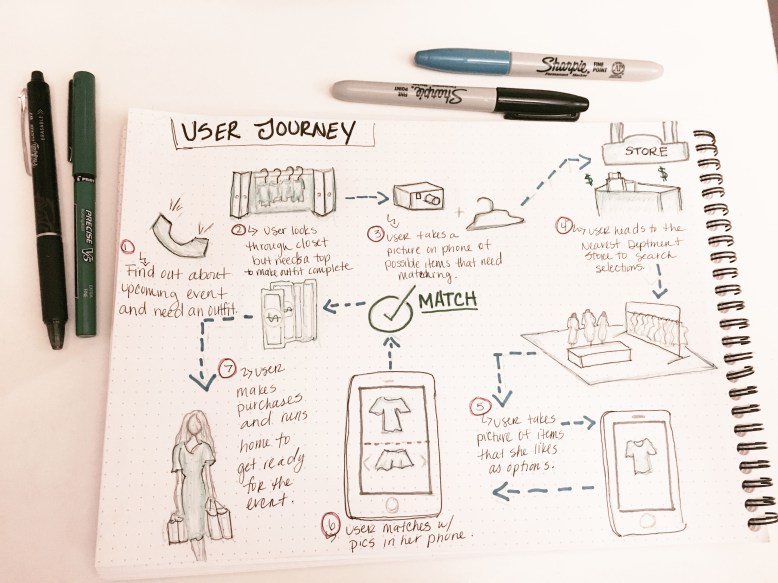 Sharpie.
FINE POINT
Sharpie
FINE POINT
PILOT
PRECISE V5
USER JOURNEY
STORE
$ $
1
Find out about
upcoming event
and need an outfit.
2 User looks
through closet
but needs a top
to make outfit complete
3
User takes a
picture on phone of
possible items that need
matching.
+
4 User heads to the
Nearest Deptment
Store to search
selections.
MATCH
5
User takes
picture of items
that she likes
as options.
6 User matches w/
pics in her phone.
7 User
makes
purchases
and runs
home to
get ready
for the
event.